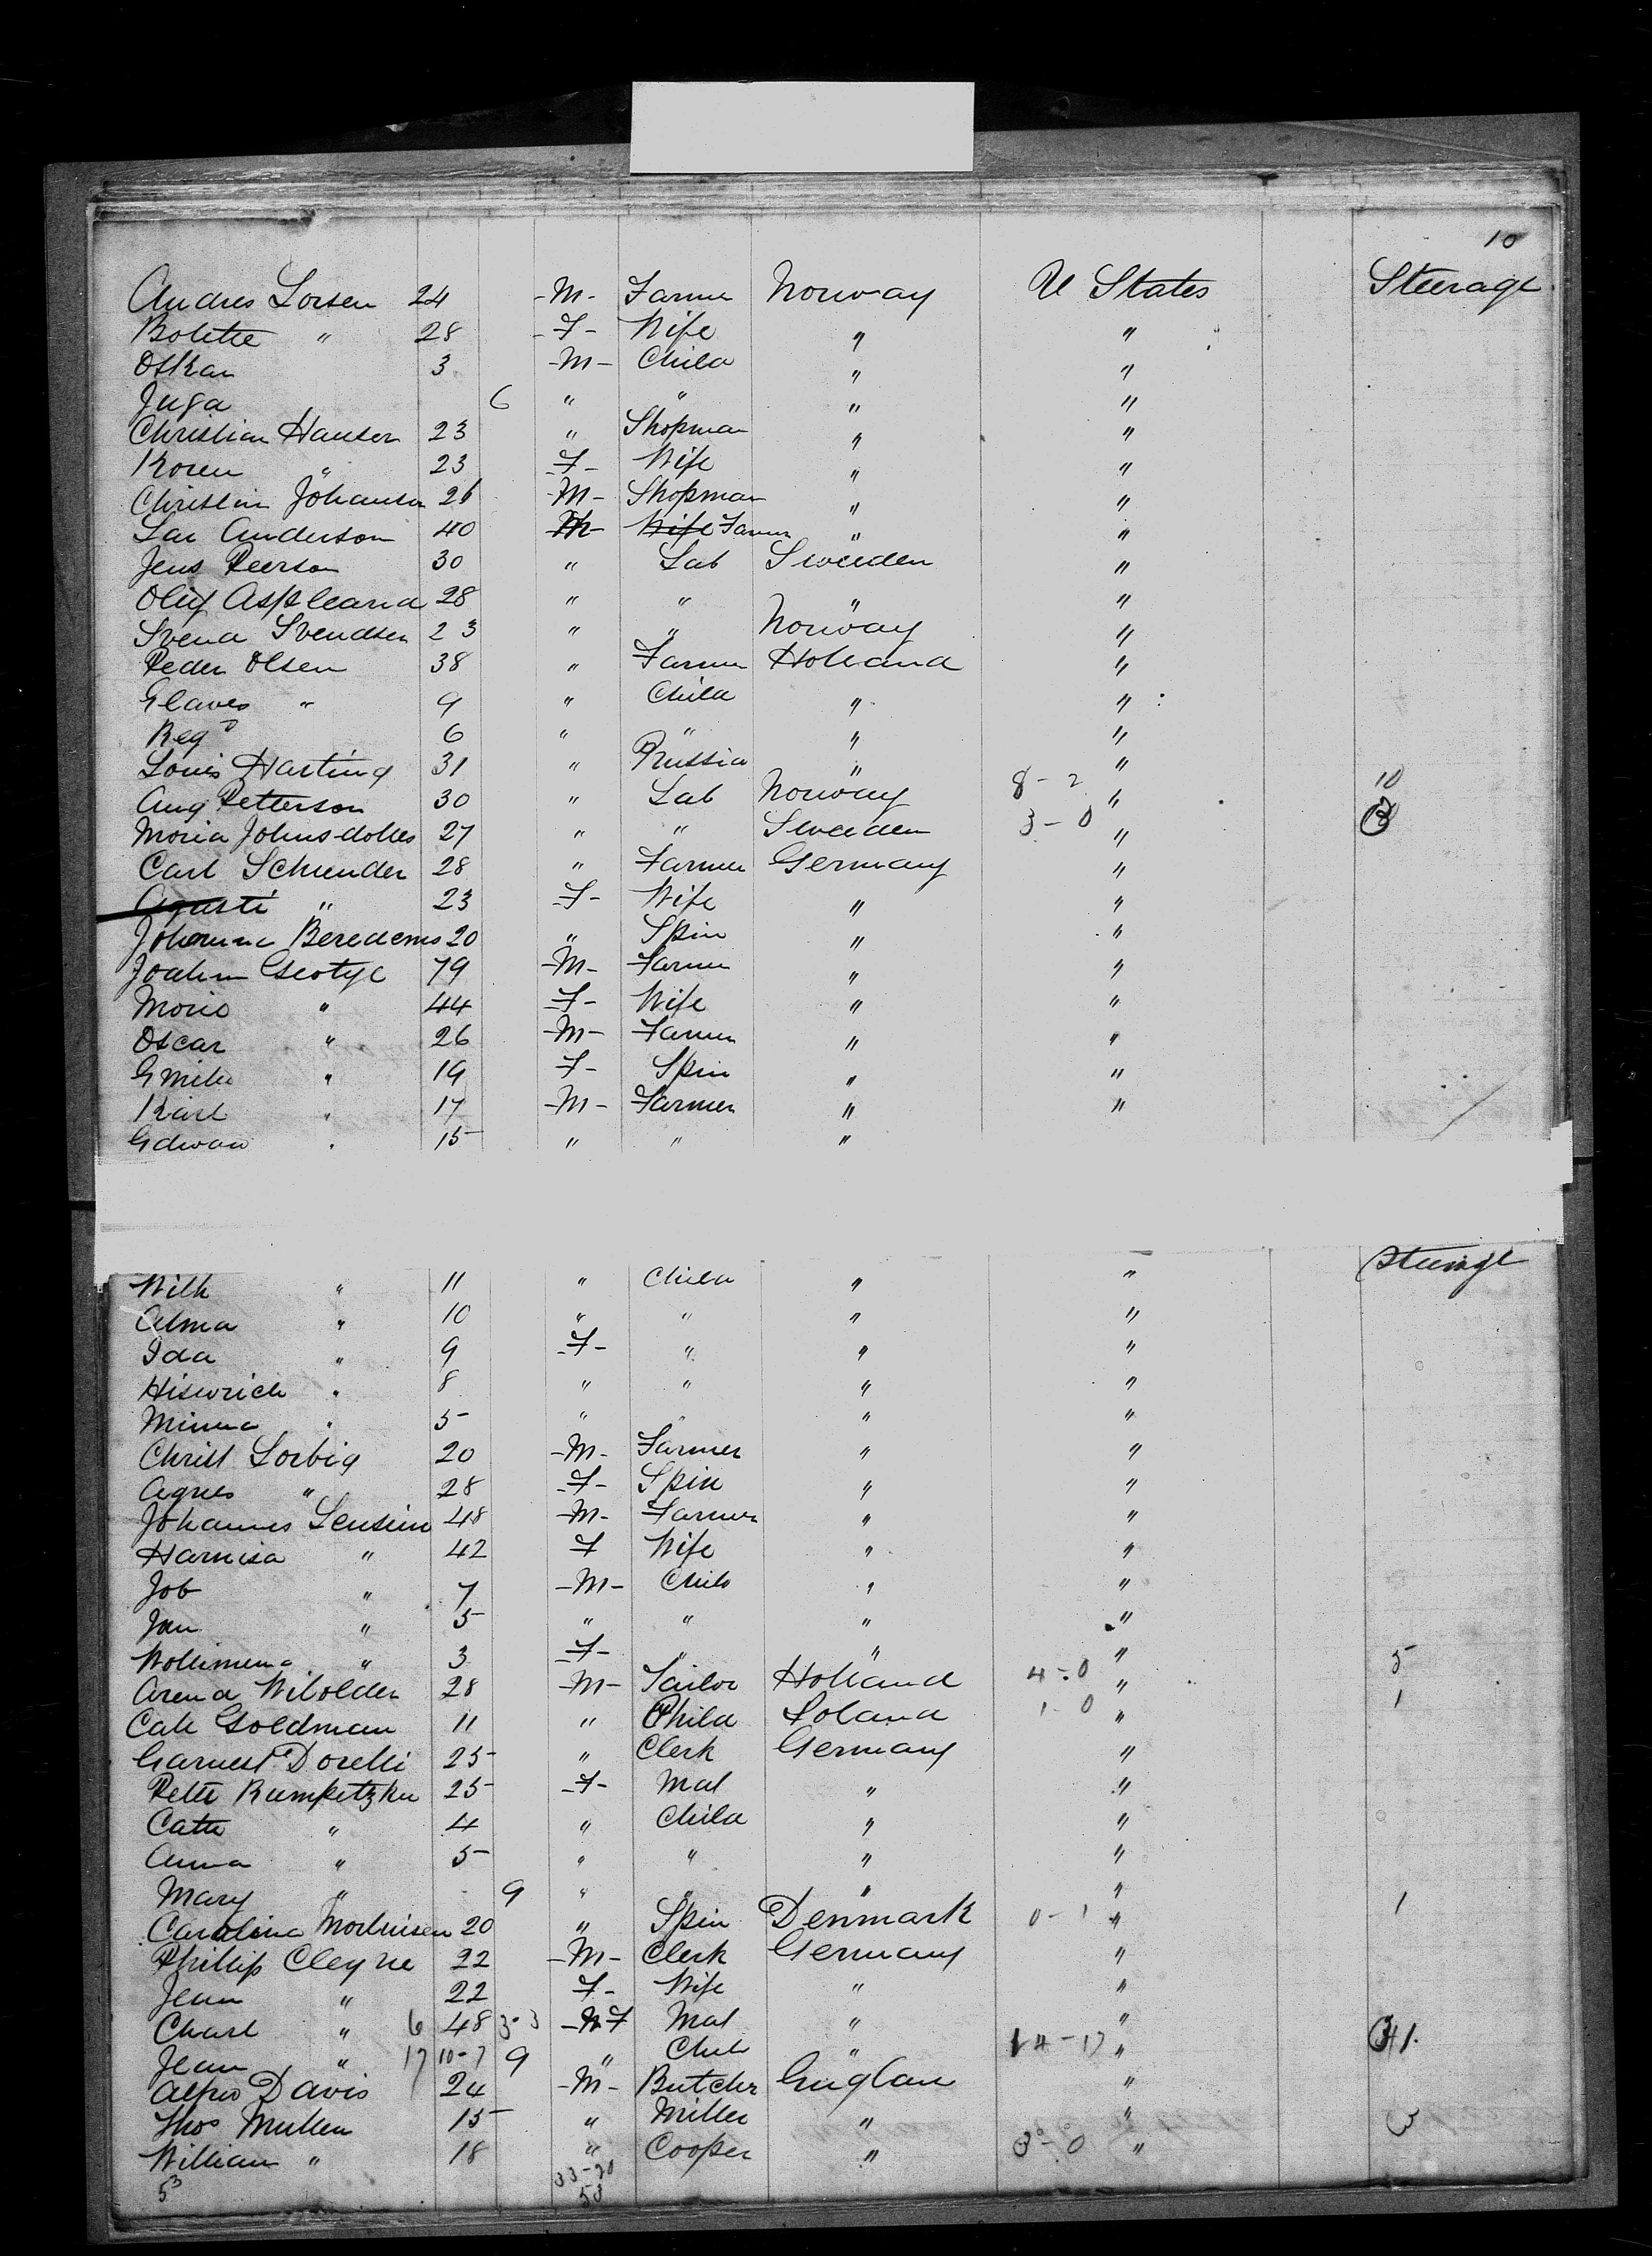 10
Andres Lorsen 24 -M- Farmer Norway U States Steerage
Bolette " 28 -F- Wife " "
Oskar 3 -M- Child " "
Juga 6 " " " "
Christian Hansen 23 " Shopman " "
Koren " 23 -F- Wife " "
Christin Johansen 26 -M- Shopman " "
Lar Anderson 40 -M- Wife Farmer " "
Jens Peerson 30 " Lab Sweeden "
Oluf Aspleand 28 " " " "
Svend Svendsen 23 " " Norway "
Peder Olsen 38 " Farmer Holland "
Glaves " 9 " Child " "
Reg 6 " " " "
Louis Harting 31 " Prussia " "
Aug Petterson 30 " Lab Norway 8-2 " 10
Moria Johnsdolles 27 " " Sweeden 3-0 " 3
Carl Schunder 28 " Farmer Germany "
Agusti " 23 -F- Wife " "
Johanna Beredems 20 " Spin " "
Joahim Geotye 79 -M- Farmer " "
Morie " 44 -F- Wife " "
Oscar " 26 -M- Farmer " "
Emilie " 19 -F- Spin " "
Karl " 17 -M- Farmer " "
Edwan " 15 " " "
Steerage
Wilh " 11 " Child " "
Alma " 10 " " " "
Ida " 9 -F- " " "
Hiswrich " 8 " " " "
Minna " 5 " " " "
Christ Lorbig 20 -M- Farmer " "
Agnes " 28 -F- Spin " "
Johannes Sensein 48 -M- Farmer " "
Harmisa " 42 F Wife " "
Job " 7 -M- Child " "
Jan " 5 " " " "
Wollimena " 3 -F- " " " 5
Arend Wibolder 28 -M- Tailor Holland 4-0 " 1
Cale Goldman 11 " Child Poland 1-0 "
Garnest Dorelli 25 " Clerk Germany "
Pette Rumpetzku 25 -F- Mat " "
Cath " 4 " Child " "
Anna " 5 " " " "
Mary " 9 " " " "
Carolina Mortinisen 20 " Spin Denmark 0-1 " 1
Phillip Cleyne 22 -M- Clerk Germany "
Jean " 22 F- Wife " "
Charl " 6 48 3-3 -M F Mat " "
Jean " 17 10-7 9 " Child " 14-17 " 41.
Alfred Davis 24 -M- Butcher Englan "
Thos Mullen 15 " Miller " " 3
William " 18 " Cooper " 3-0 "
53 33-20
53